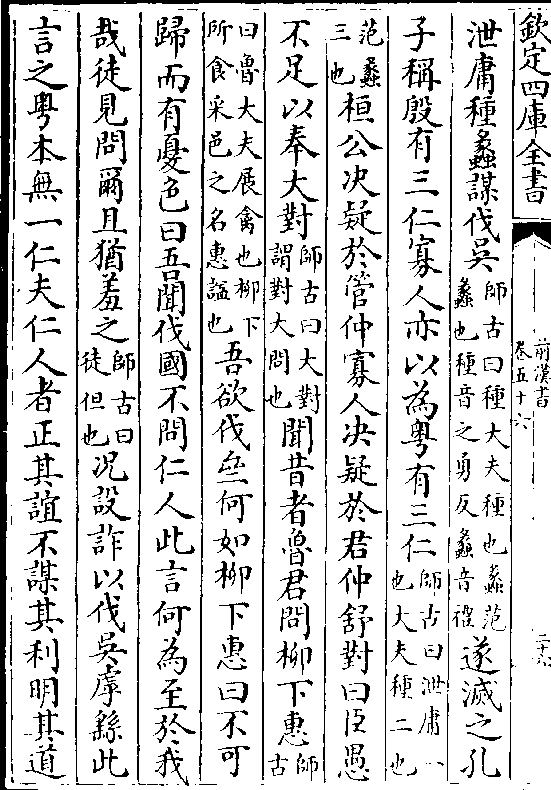 欽定四庫全書
前漢書
卷五十六
二十六
泄庸種蠡謀伐吳師古曰種大夫種也蠡范蠡也種音之勇反蠡音禮遂滅之孔
子稱殷有三仁寡人亦以為粤有三仁師古曰泄庸一也大夫種二也
范蠡三也桓公决疑於管仲寡人决疑於君仲舒對曰臣愚
不足以奉大對師古曰大對謂對大問也聞昔者魯君問柳下惠師古
曰魯大夫展禽也柳下所食采邑之名惠諡也吾欲伐齊何如柳下惠曰不可
歸而有憂色曰吾聞伐國不問仁人此言何為至於我
哉徒見問爾且猶羞之師古曰徒但也况設詐以伐吳虖繇此
言之粤本無一仁夫仁人者正其誼不謀其利明其道